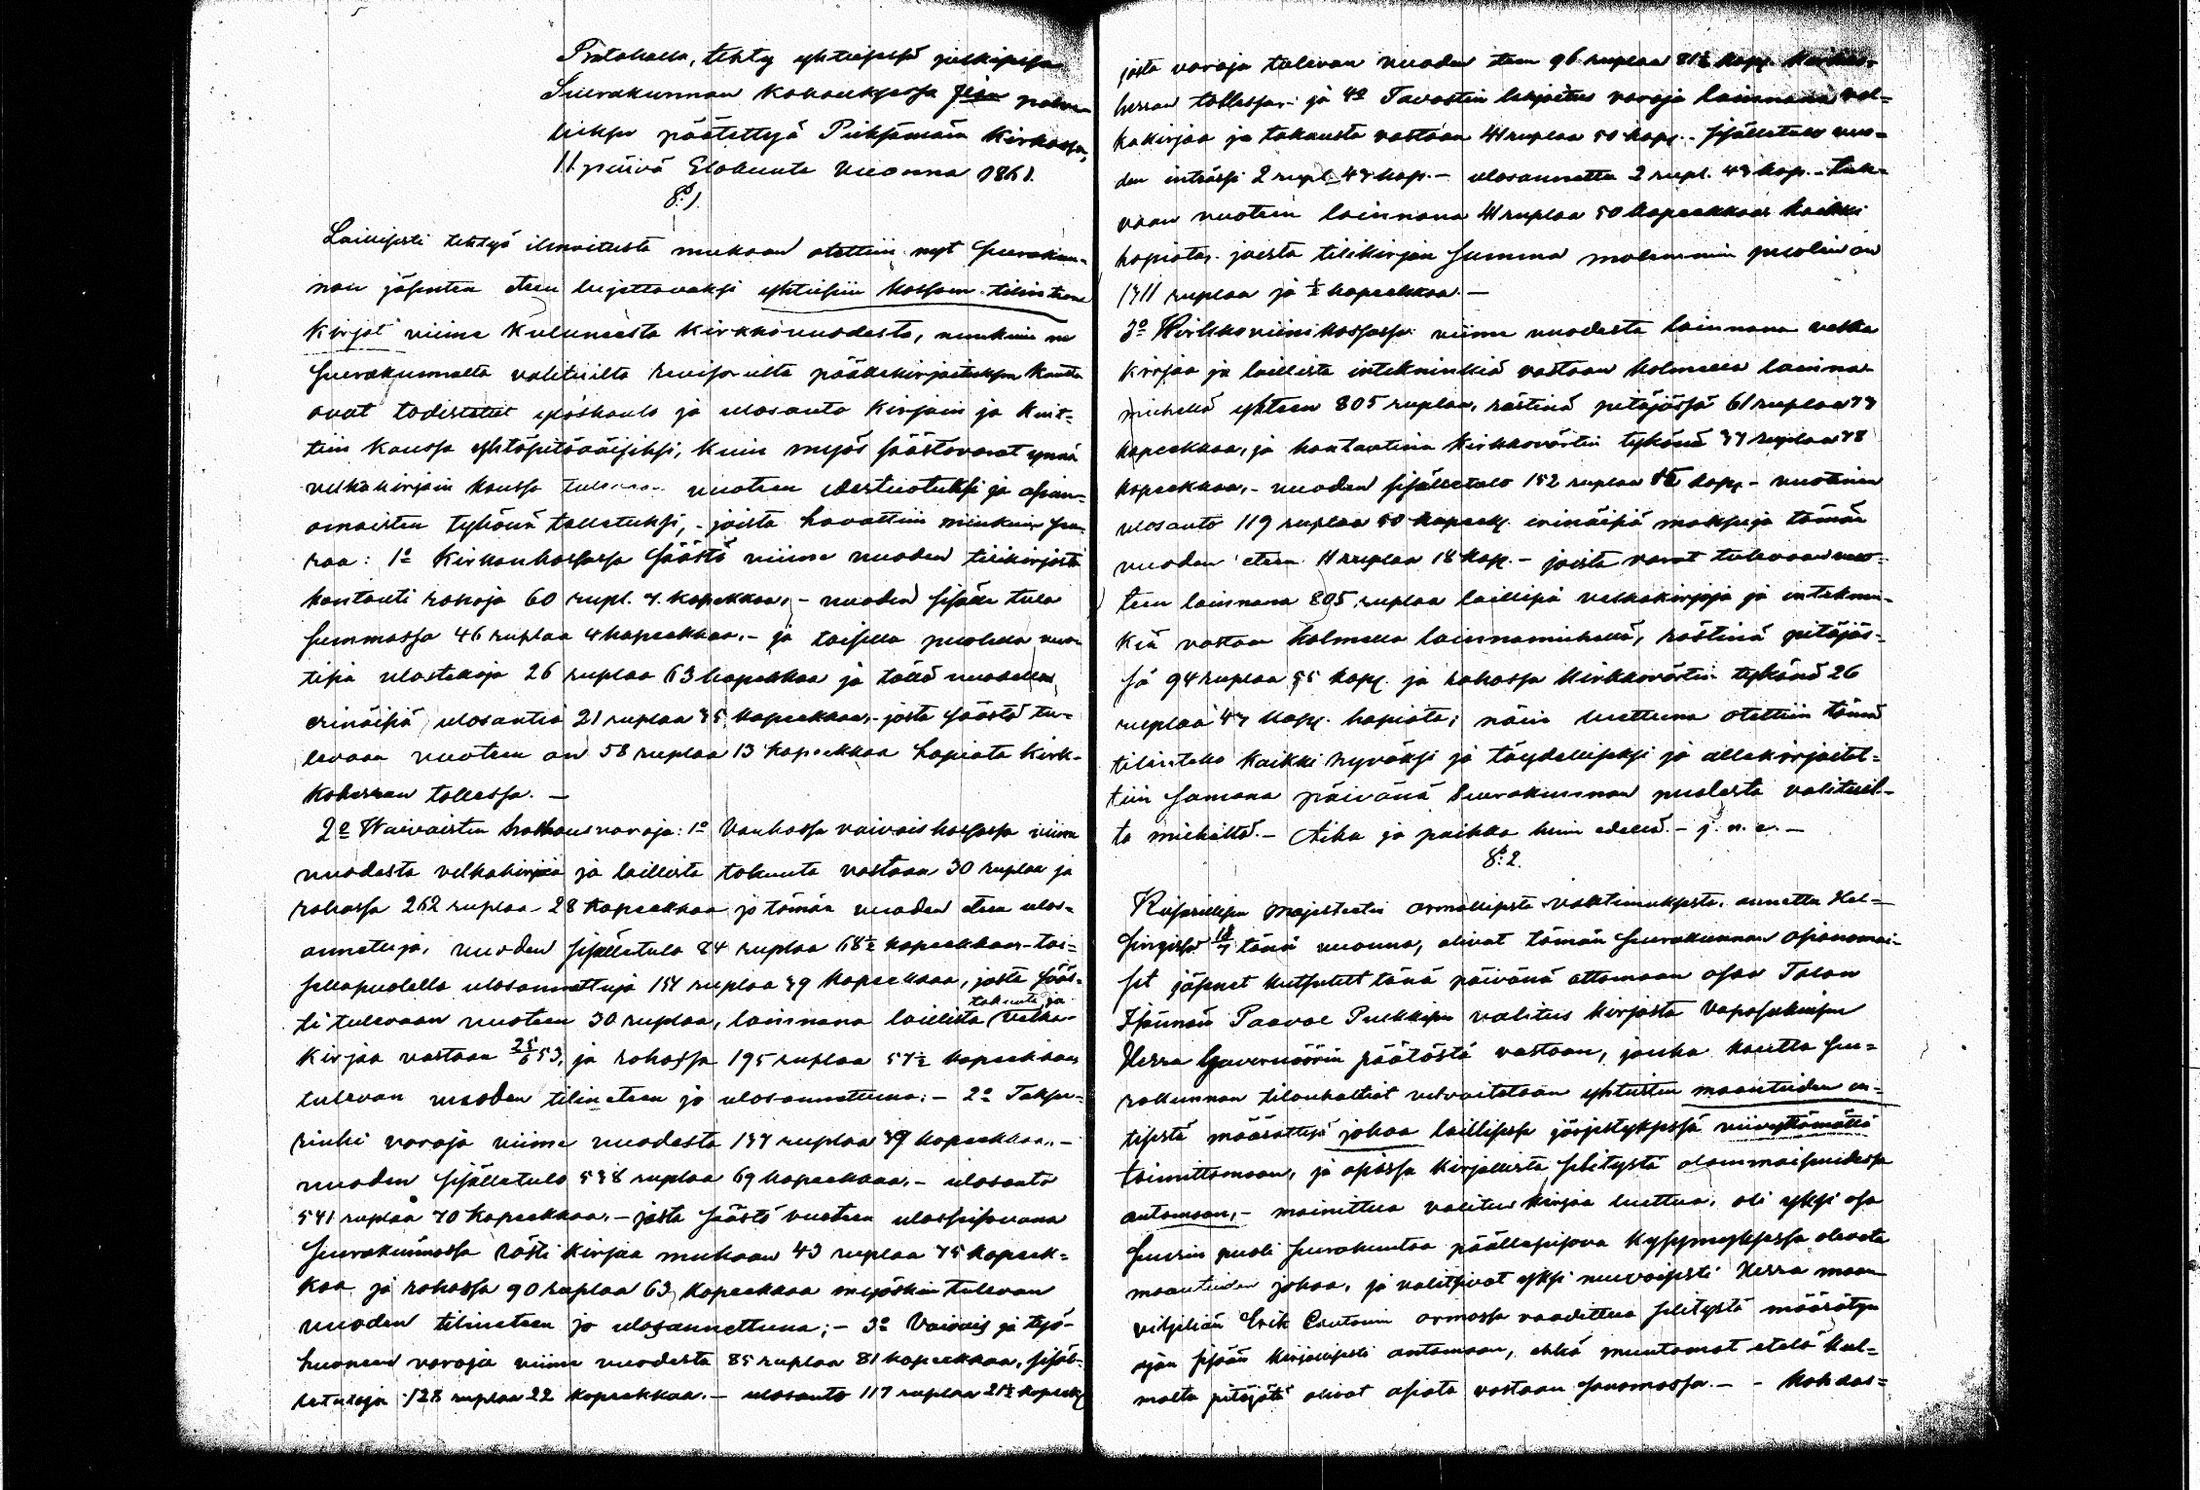 Protokolla, tehty yhteisessä julkisessa
Seurakunnan kokouksessa Jean palve-
luksen päätettyä Pieksämään Kirkossa,
11 päivä Elokuuta Vuonna 1861.
§ 1.
Laillisesti tehtyä ilmoitusta mukaan otettiin nyt Seurakun-
nan jäsenten eteen lujettavaksi yhteisiin kassain tilinteon
Kirjat viime kuluneesta Kirkkovuodesta, niinkuin ne
Seurakunnalta valituilta revisorilta päällekirjoituksen kautta
ovat todistetut ylöskanto ja ulosanto kirjain ja kuit-
tien kanssa yhtäpitäväisiksi, kuin myös säästövarat ynnä
velkakirjain kanssa tulevaan vuoteen edestuotuksi ja asian-
omaisten tykönä talletuksi, - joista havattiin niinkuin seu-
raa: 1º Kirkonkassassa säästö viime vuoden tilikirjasta
kontanti rahaja 60 rupl. 7. kopekkaa, - vuoden sisälle tulo
Summassa 46 ruplaa 4 kopeekkaa. - ja toisella puolella vuo-
tisia ulostekoja 26 ruplaa 63 kopeekkaa ja tällä vuodella
erinäisiä ulosantia 21 ruplaa 35 kopeekkaa, - josta säästö tu-
levaan vuoteen on 58 ruplaa 13 kopeekkaa hopiata Kirk-
koherran tallessa. -
2º Waivaisten holhousvaroja: 1º Vanhassa vaivaiskassassa viime
vuodesta velkakirjaa ja laillista takausta vastaan 30 ruplaa ja
rahassa 262 ruplaa 28 kopeekkaa jo tämän vuoden eteen ulos-
annettuja, vuoden sisälletulo 84 ruplaa 68½ kopeekkaa - toi-
sellapuolella ulosannettuja 151 ruplaa 39 kopeekkaa, josta sääs-
takausta ja
tö tulevaan vuoteen 30 ruplaa, lainnana laillista velka-
kirjaa vastaan 25/6 53, ja rahassa 195 ruplaa 57½ kopeekkaa
tulevan vuoden tilin eteen jo ulosannettuna: - 2º Taksee-
rinki varoja viime vuodesta 137 ruplaa 39 kopeekkaa. -
vuoden sisälletulo 538 ruplaa 69 kopeekkaa. - ulosanto
541 ruplaa 70 kopeekkaa. - josta säästö vuoteen ulosseisovana
Seurakunnassa rästi kirjaa mukaan 43 ruplaa 75 kopeek-
kaa ja rahassa 90 ruplaa 63 kopeekkaa myöskin tulevan
vuoden tilineteen jo ulosannettuna; - 3º Vaivais ja työ-
huoneen varoja viime vuodesta 85 ruplaa 81 kopeekkaa, sisäl-
letuloja 128 ruplaa 22 kopeekkaa. - ulosanto 117 ruplaa 21½ kopeek
josta varoja tulevan vuoden eteen 96 ruplaa 81½ kop. Kirkko-
herran tallessa. ja 4º Tavastin lahjoitus varoja lainnana vel-
kakirjaa ja takausta vastaan 41 ruplaa 50 kop. - sisälletulo vuo-
den inträssi 2 rupl. 49 kop. - ulosannettu 2 rupl. 49 kop. - tule-
vaan vuoteen lainnana 41 ruplaa 50 kopeekkaa kaikki
hopiata, joista tilikirjan Summa molemmin puolin on
1311 ruplaa ja ½ kopeekkaa. -
3º Kirkkoviinikassassa viime vuodesta lainnana velka
kirjaa ja laillista intekninkiä vastaan kolmella lainna-
miehellä yhteen 805 ruplaa, rästinä pitäjässä 61 ruplaa 73
kopeekkaa, ja kontantina Kirkkovärtin tykönä 37 ruplaa 78
kopeekkaa, - vuoden sisälletulo 152 ruplaa kop. - vuotinen
ulosanto 119 ruplaa 50 kopeek. erinäisiä maksuja tämän
vuoden eteen 11 ruplaa 18 kop. - joista varat tulevaan vuo-
teen lainnana 805 ruplaa laillisia velkakirjoja ja inteknin-
kiä vastaan kolmella lainnamiehellä, rästinä pitäjäs-
sä 94 ruplaa 55 kop. ja rahassa Kirkkovärtin tykönä 26
ruplaa 47 kop. hopiata; näin luettuna otettiin tämä
tilinteko kaikki hyväksi ja täydelliseksi ja allekirjoitet-
tiin samana päivänä Seurakunnan puolesta valituil-
ta miehiltä. - Aika ja paikka kuin edellä. - j. n. e. -
§ 2.
Keisarillisen Majesteetin armollisesta vaatimuksesta, annettu Hel-
singissä 18/7 tänä vuonna, olivat tämän Seurakunnan asianomai-
set jäsenet kutsutut tänä päivänä ottamaan osaa Talon
Isännän Paavo Pulkkisen valitus kirjasta
Herra Guvernöörin päätöstä vastaan, jonka kautta seu-
rakunnan tilanhaltiat velvoitetaan yhteisten maanteiden en-
tisestä määrättyä jakoa laillisessa järjestyksessä viivyttämättä
toimittamaan, ja asiassa kirjallista selitystä
antamaan, - mainittua valitus kirjaa luettua, oli yksi osa
Suurin puoli Seurakuntaa päällesisova kysymyksessä olevata
maanteiden jakoa, ja valitsivat yksi neuvoisesti Herra maan
viljeliän Erik armossa vaadittua selitystä määrätyn
ajan sisään kirjallisesti antamaan, ehkä muutamat etelä kul-
malta pitäjätä olivat asiata vastaan sanomassa. - - Kohdas-